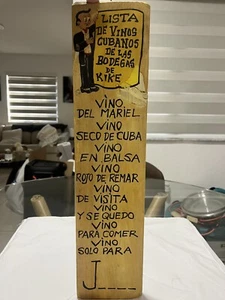 LISTA
DE VINOS
CUBANOS
DE LAS
BODEGAS
DE
KIKE
VINO
DEL MARIEL
VINO
SECO DE CUBA
VINO
EN BALSA
VINO
ROJO DE REMAR
VINO
DE VISITA
VINO
Y SE QUEDO
VINO
PARA COMER
VINO
SOLO PARA
J____